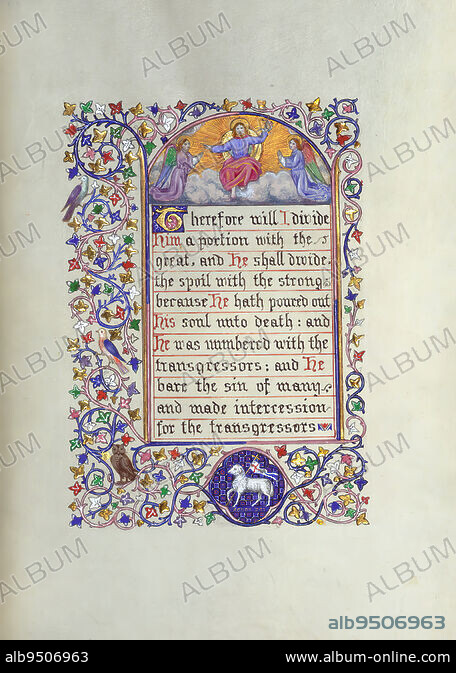 Therefore will I divide
him a portion with the
great, and He shall divide
the spoil with the strong
because He hath poured out
His soul unto death: and
He was numbered with the
transgressors; and He
bare the sin of many
and made intercession
for the transgressors
AGNUS DEI
ALBUM
alb9506963
alb9506963
www.album-online.com